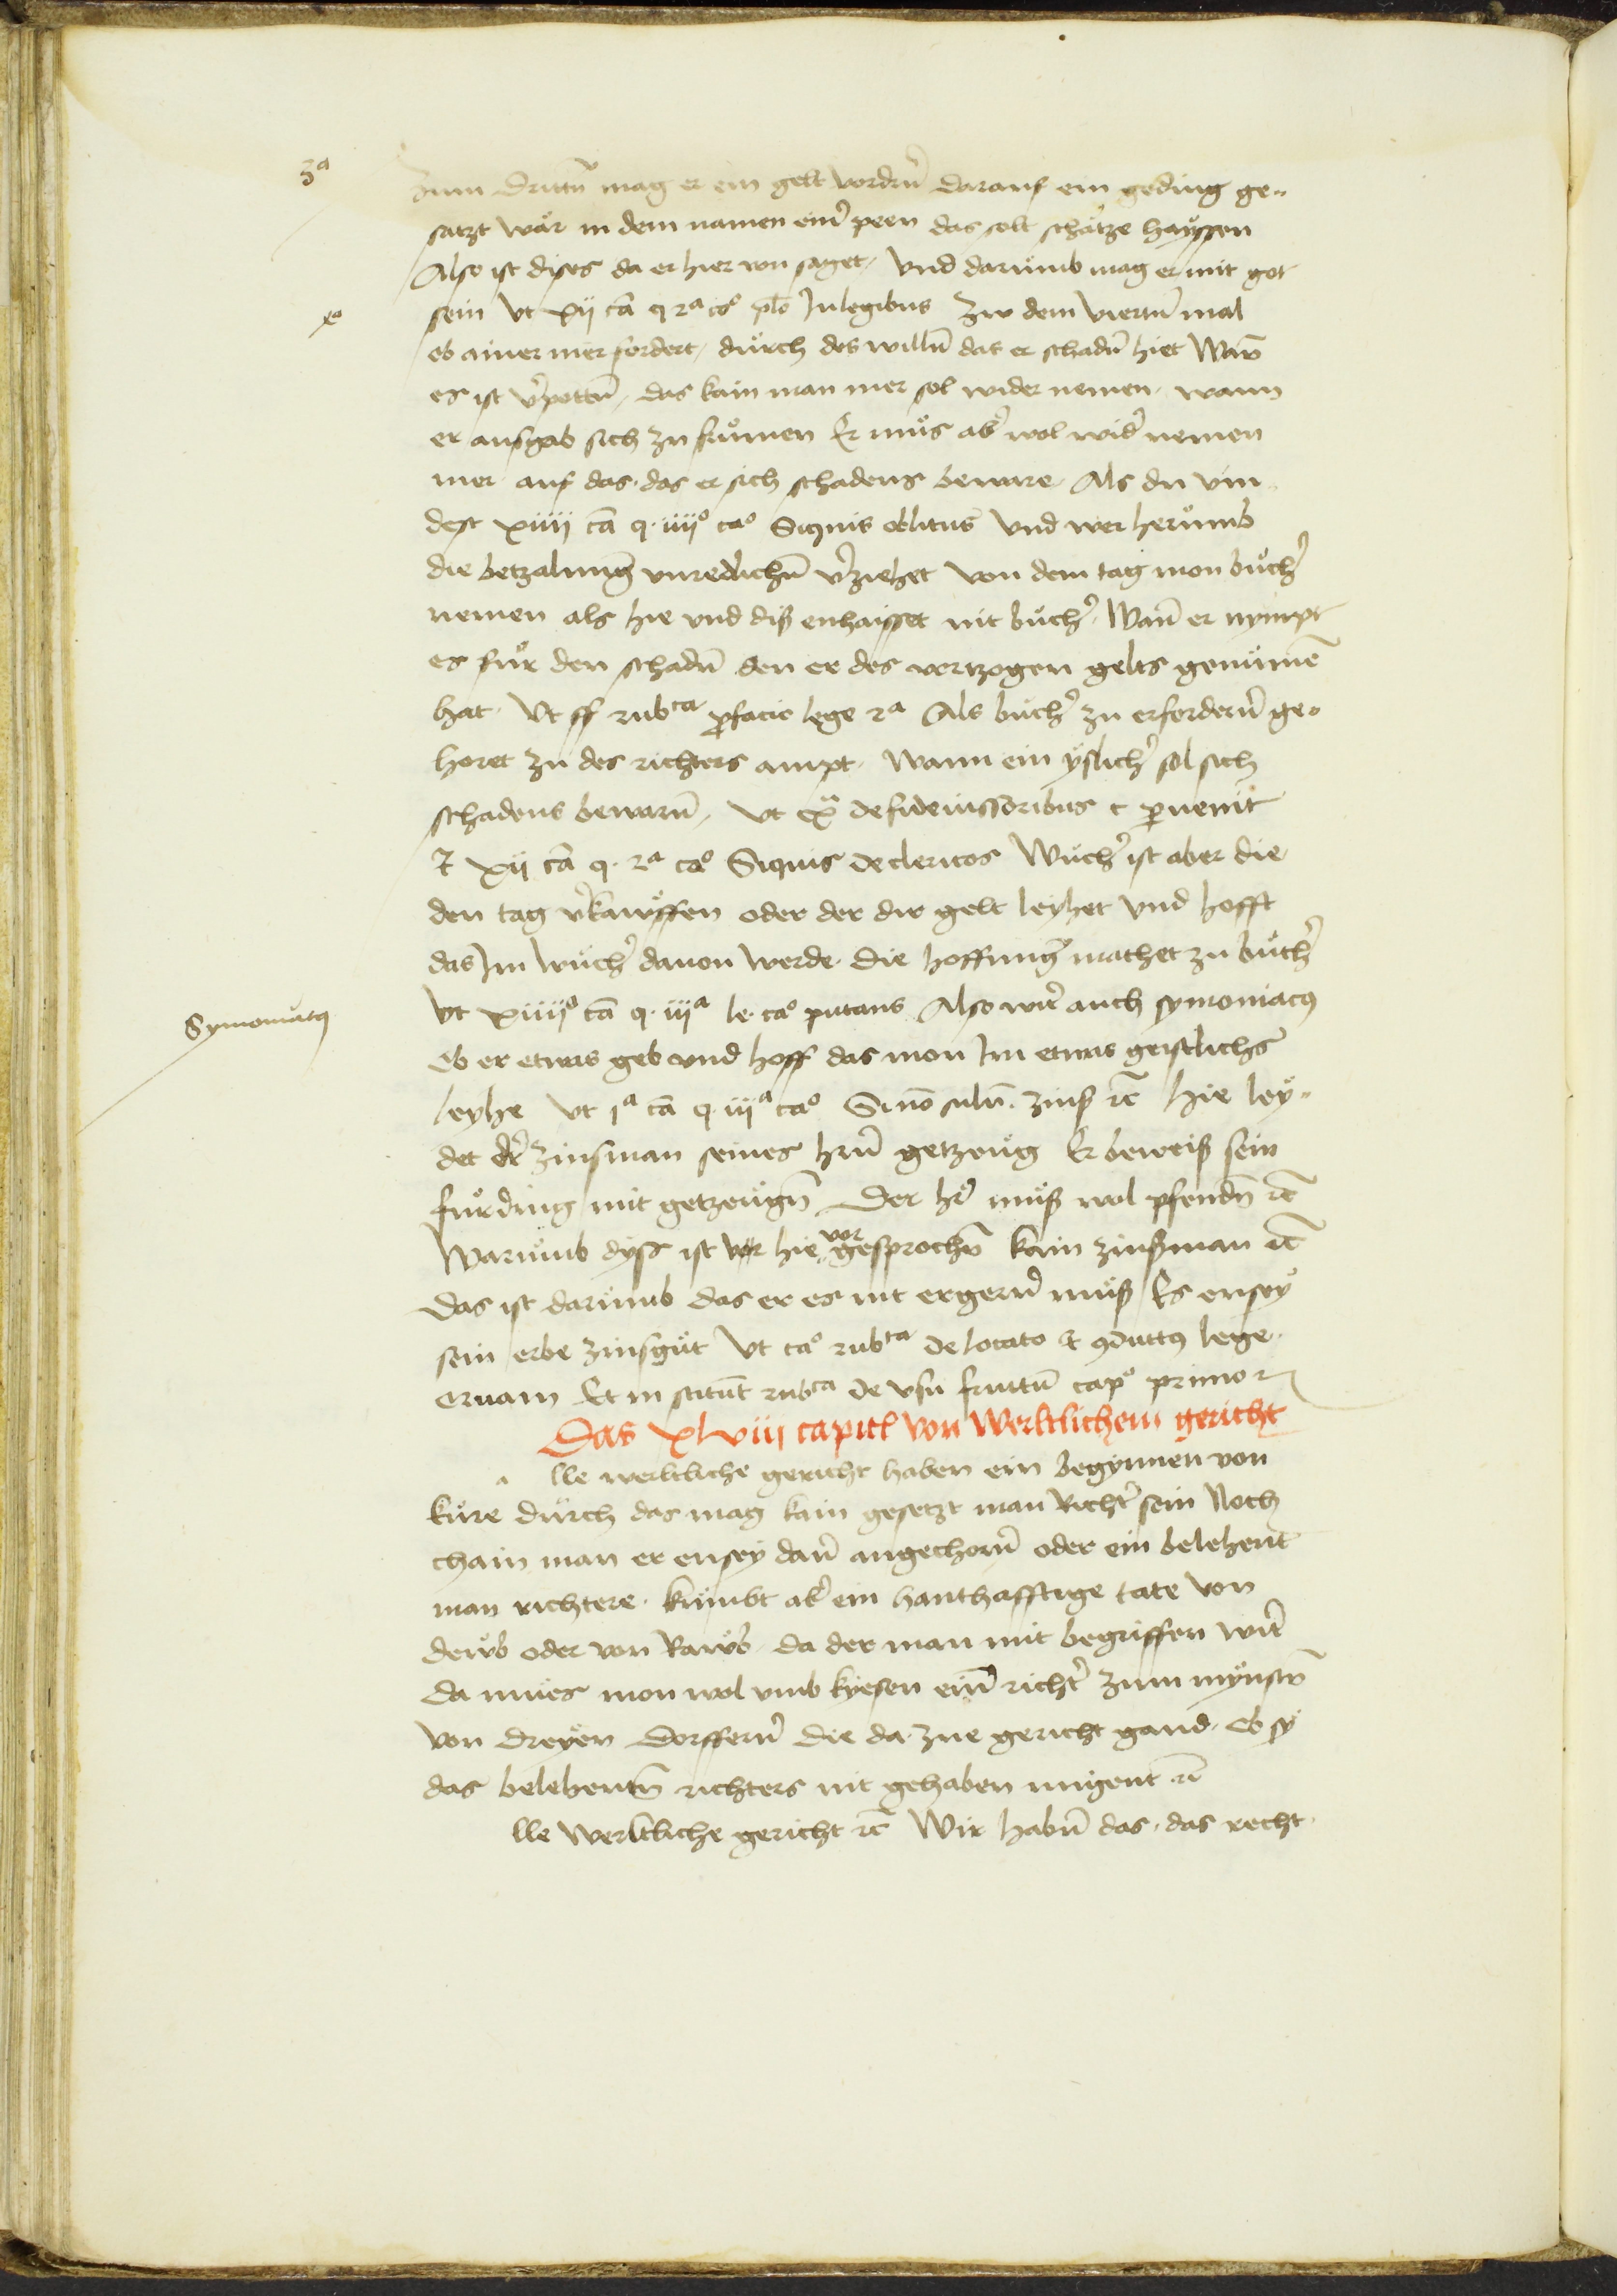 3a
Zum drittn̄ mag er ein gelt vordrn̄ darauf ein geding ge„
satzt wär in dem namen eine᷑ peen das solt schätze hayssen
Also ist dises da er hier von saget, Vnd darümb mag er mit got
4a
sein Vt xij cā q 2a co Jn legibus Zw dem viertn̄ mal
ob ainer mer fordert, dürch des willn̄ das er schadn̄ hiet Wan̄
es ist v᷑pottn̄, das kain man mer sol wider nemen, wann
er ausgab sich zu früemen Er müs ab᷑ wol wid᷑ nemen
mer auf das, das er sich schadens beware Als du vin„
dest xiiij cā q. iiijo cao Siquis oblitus Vnd wer herümb
die betzalung vnredlichn̄ v᷑ziehet Von dem tag mon büch᷑
nemen als hie vnd diß enhaisset nit büch᷑. Wan̄ er nympt
es für den schadn̄ den er des vertzogen gelts genümē
hat. Vt ff rubca lege 2a Als büch᷑ zu erfordern̄ ge„
horet zu des richters ampt. Wann ein yslich᷑ sol sich
schadens bewarn̄, Vt de fideiussoribus c ꝑuenit
Et xij cā q. 2a cao Siquis de clericos Wüch᷑ ist aber die
den tag v᷑kawffen oder der dir gelt leyhet Vnd hofft
das Jm wüch᷑ dauon werde. Die hoffnung machet zu büch᷑
Vt xiiijo cā q. iija le. cao putans Also wirt auch symoniacꝰ
Symoniacꝰ
Ob er etwas geb vnd hoff das mon Jm etwas geistlichs
leyhe Vt ja cā q. iija cao zinß ꝛc̄ hie ley„
det d᷑ zinsman seines hrn̄ getzeüg Er beweiß sein
fürding mit getzeügn̄ Der h᷑ müß wol pfendn̄ ꝛc̄
Warümb dyß ist vor hie vor gesprochn̄ kain zinßman ꝛc̄
Das ist darümb das er es nit ergern̄ müß Es ensey
sein erbe zinsgüt Vt cao rubca de locato Et ꝯductꝰ lege.
eruam Et in rubca de vsu fructu capo primo ꝛ
Das xlviij capitl von Werltlichem gericht
a lle werltliche gericht haben ein begynnen von
küre dürch das mag kain gesetzt man Richt᷑ sein Noch
chain man er ensey dan̄ angechorn̄ oder ein belehent
man richtere. kümbt ab᷑ ein hanthafftige tate von
dewb oder von Rawb. da der man mit begriffen wirt
da mües mon wol vmb kyesen ein̄ richt᷑ zum mynstn̄
von dreyen dorffern̄ die da zue gericht gand. Ob sy
das belehentn̄ richters nit gehaben mügent ꝛc̄
lle werltliche gericht ꝛc̄ Wir habn̄ das, das recht.